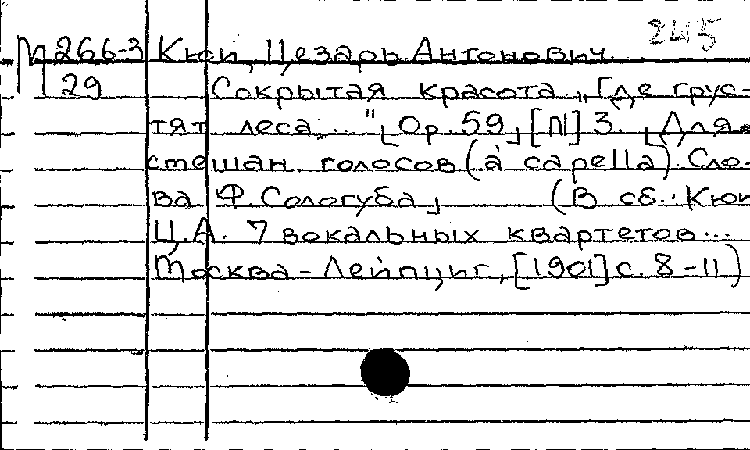 245
М266-3 Кюи, Цезарь Антонович.
29 Сокрытая красота „Где грус-
тят леса..." [Op. 59] [N] 3. [Для
смешан. голосов (a capella). Сло-
ва Ф. Сологуба] (В сб.: Кюи
Ц.А. 7 вокальных квартетов...
Москва - Лейпциг, [1901] с. 8-11)